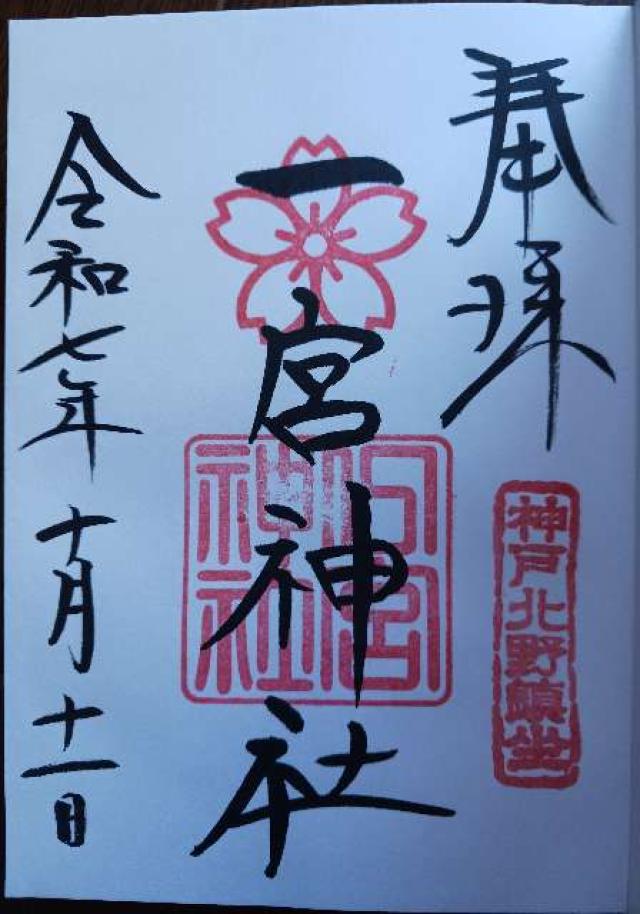 奉拝
神戸北野鎮坐
一宮神社
一宮神社
令和七年十月十一日